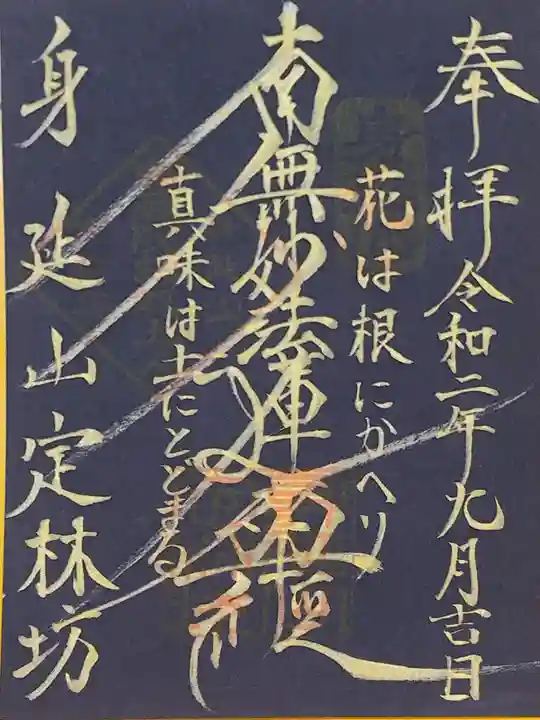 奉拝令和二年九月吉日
花は根にかへり
南無妙法蓮華経
真味は土にとどまる
身延山定林坊